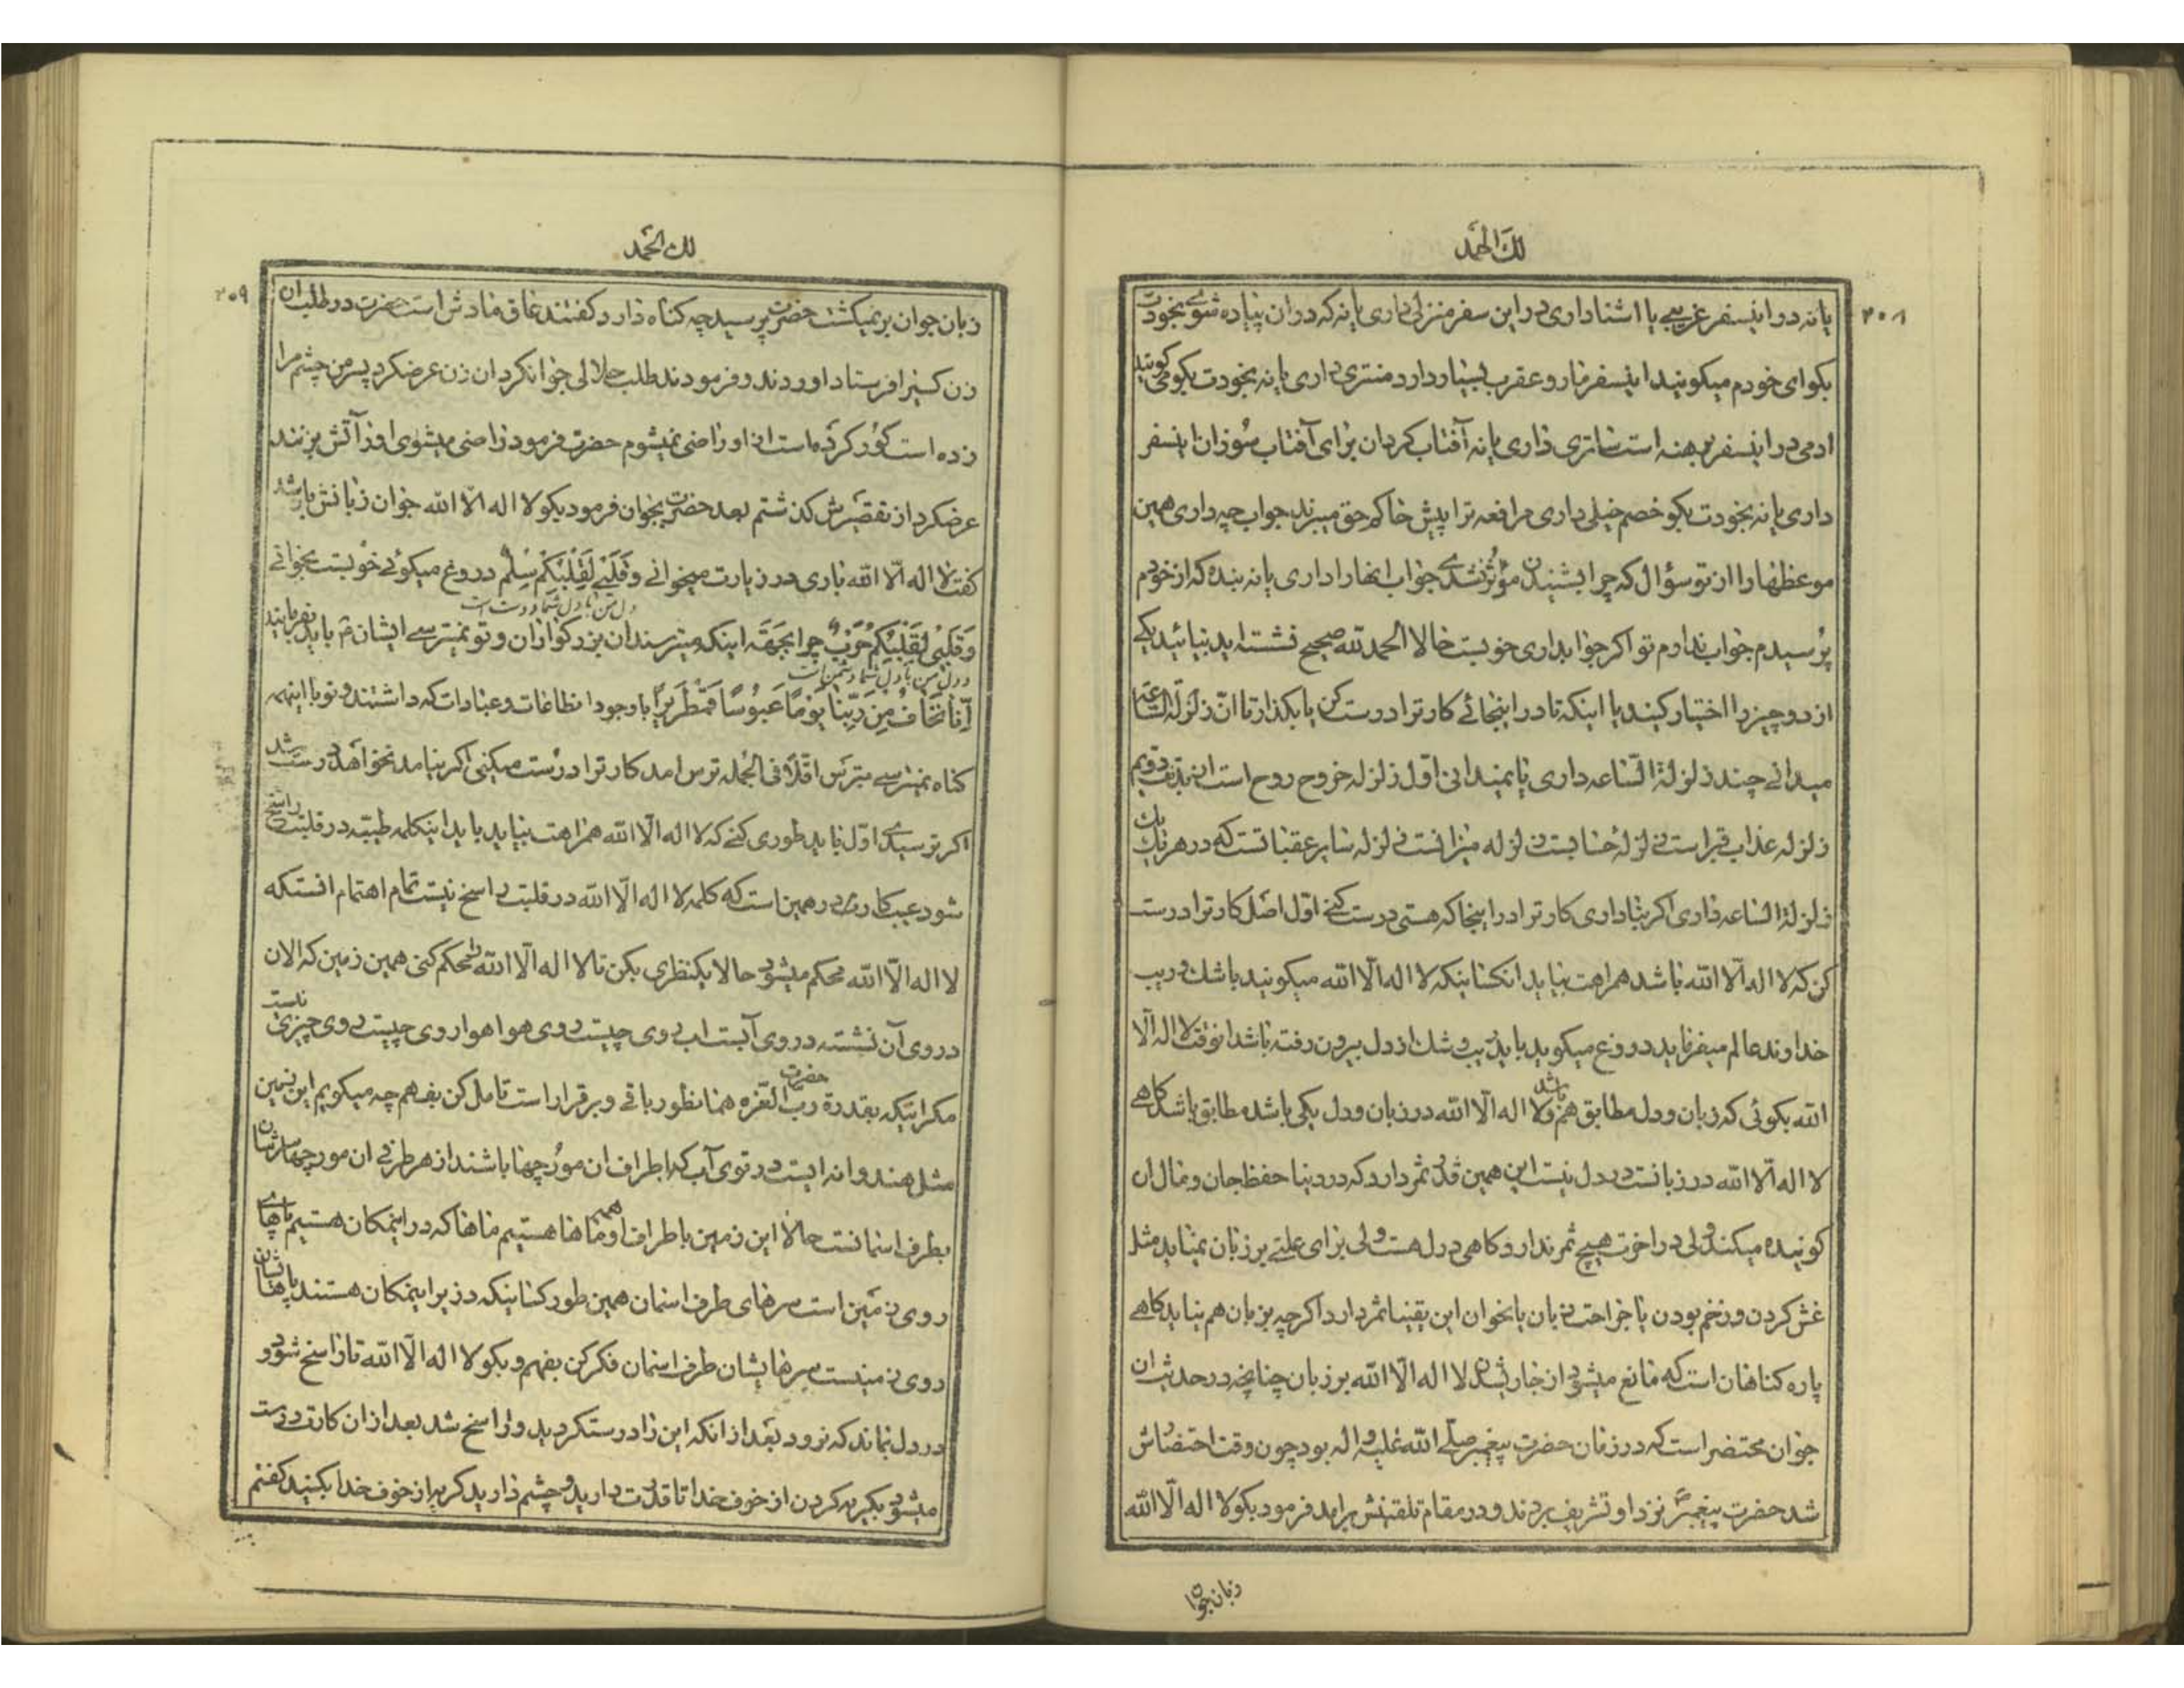 لك الحمد
۲۰۸
یا نه در اینسفر غریبی یا اشنا داری در این سفر منزلی داری یا نه که در ان پیاده شوی بخودت
بکو ای خودم میکویند اینسفر مار و عقرب بسیار دارد منتری داری یا نه بخودت بکو می کویند
ادمی در اینسفر برهنه است ساتری داری یا نه آفتاب کردان برای آفتاب سوزان اینسفر
داری یا نه بخودت بکو خصم خیلی داری مرافعه ترا پیش حاکم حق میبرند جواب چه داری همین
موعظهارا از تو سؤال که چرا بشنیدن مؤثر نشدی جواب اینها را داری یا نه بنده که از خودم
پرسیدم جواب ندارم تو اکر جواب داری خوبست حالا الحمد لله صحیح نشسته اید بیائید یکی
از دو چیز را اختیار کنید یا اینکه تا در اینجائے کار ترا درست کن یا بکذار تا انّ زلزلة الساعة
میدانے چند زلزلة الساعه داری یا نمیدانی اول زلزله خروح روح است از بدن دویم
زلزله عذاب قبر است زلزله حسابست زلزله میزانست زلزله سایر عقباتست که در هر یک
زلزلة الساعه داری اکر بنا داری کار ترا در اینجا که هستی درست کنے اول اصل کار ترا درست
کن که لا اله الّا الله باشد همراهت بیاید انکسانیکه لا اله الّا الله میکویند با شك و ریب
خداوند عالم میفرماید دروغ میکوید باید ریب و شك از دل بیرون رفته باشد انوقت لا اله الّا
الله بکوئی که زبان و دل مطابق هم باشد و لا اله الّا الله در زبان و دل یکی باشد مطابق باشد کاهے
لا اله الّا الله در زبانست در دل نیست این همین قدر ثمر دارد که در دنیا حفظ جان و مال ان
کوینده میکند ولی در اخرت هیچ ثمر ندارد کاهی در دل هست ولی برای علتے بر زبان نمیاید مثل
غش کردن و زخم بودن یا جراحت زبان یا نحو ان این یقینا ثمر دارد اکرچه بزبان هم نیاید کاهے
پاره کناهان است که مانع میشود از جاری شدن لا اله الّا الله بر زبان چنانچه در حدیث ان
جوان محتضر است که در زمان حضرت پیغمبر صلے الله علیه و اله بود چون وقت احتضارش
شد حضرت پیغمبر نزد او تشریف بردند و در مقام تلقینش برامد فرمود بکو لا اله الّا الله
زبان جوان
لك الحمد
۲۰۹
زبان جوان بر نمیکشت حضرت پرسید چه کناه دارد کفتند عاق مادرش است حضرت در طلب ان
زن کسیرا فرستاد اوردند و فرمودند طلب حلالی جوانکرد ان زن عرضکرد پسر من چشم مرا
زده است کور کرده است از او راضی نمیشوم حضرت فرمود راضی میشوی او را آتش بزنند
عرضکرد از تقصیرش کذشتم بعد حضرت بجوان فرمود بکو لا اله الّا الله جوان زبانش باز شد
کفت لا اله الّا الله باری در زیارت میخوانے وَقَلْبِي لِقَلْبِكُمْ سِلْمٌ دروغ میکوئے خوبست بخوانے
دل من با دل شما درست است
وَقَلْبِي لِقَلْبِكُمْ حَرْبٌ چرا بجهة اینکه میترسند ان بزرکواران و تو نمیترسے ایشان باید بفرمایند
و دل من با دل شما دشمن است
اِنّا نَخافُ مِنْ رَبِّنا يَوْمًا عَبُوسًا قَمْطَرِيرًا با وجود انطاعات و عبادات که داشتند و تو با اینهمه
کناه نمیترسے بترس اقلّا فی الجمله ترس امد کار ترا درست میکنی اکر نیامد نخواهد درست شد
اکر ترسیدی اوّل باید طوری کنے که لا اله الّا الله همراهت بیاید باید اینکلمه طیبه در قلبت راسخ
شود عیب کارت در همین است که کلمه لا اله الّا الله در قلبت راسخ نیست تمام اهتمام انستکه
لا اله الّا الله محکم میشود حالا یکنظری بکن تا لا اله الّا الله را محکم کنی همین زمین که الان
در روی آن نشسته در روی آبست اب روی چیست روی هوا هوا روی چیست روی چیزی نیست
مکر اینکه بقدرة حضرت رب العزه همانطور باقے و برقرار است تامل کن بفهم چه میکویم این زمین
مثل هندوانه ایست در توی آب که اطراف ان مورچها باشند از هر طرفے ان مورچها سرشان
بطرف اسمانست حالا این زمین باطراف او همه ماها هستیم ماها که در اینمکان هستیم پاهای ما
روی زمین است سرهای طرف اسمان همین طور کسانیکه در زیر اینمکان هستند پاهاشان
روی زمینست سرهایشان طرف اسمان فکر کن بفهم و بکو لا اله الّا الله تا راسخ شود و
در دل بماند که نرود بعد از انکه این را درستکردید و راسخ شد بعد از ان کارت درست
میشود بکریه کردن از خوف خدا تا قدرت دارید و چشم دارید کریه از خوف خدا بکنید کفتم